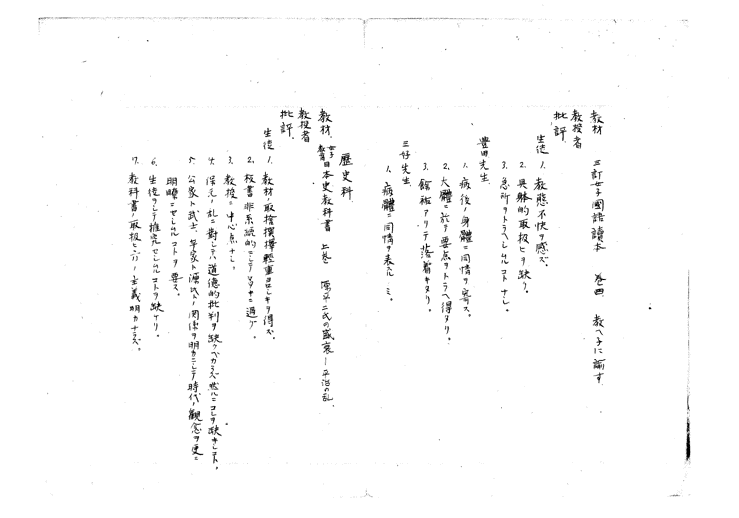 教材 三訂女子國語讀本 巻四 教へ子に諭す
教授者
批評
生徒 1. 教態不快ヲ感ズ。
2. 具体的取扱ヒヲ缺ク。
3. 急所ヲトラヘシムルコトナシ。
豊田先生
1. 病後ノ身體ニ同情ヲ寄ス。
2. 大體ニ於テ要点ヲトラヘ得タリ。
3. 餘裕アリテ落着キタリ。
三仔先生
1. 病體ニ同情ヲ表スルノミ。
歴史科
教材 女子教育日本史教科書 上巻 源平二氏の盛衰―平治の乱
教授者
批評
生徒 1. 教材ノ取捨撰擇軽重ヨロシキヲ得ズ。
2. 板書非系統的ニシテ 過グ。
3. 教授ニ中心点ナシ。
4. 保元ノ乱ニ對シテハ道徳的批判ヲ缺クベカラズ然ルニコレヲ缺キシコト。
5. 公家ト武士、平家ト源氏トノ関係ヲ明カニシテ時代ノ観念ヲ更ニ
明瞭ニセシムルコトヲ要ス。
6. 生徒ヲシテ推究セシムルコトヲ缺ケリ。
7. 教科書ノ取扱ヒ 主義明カナラズ。